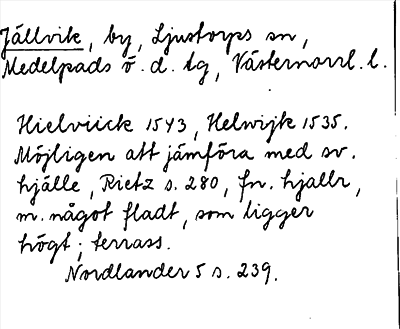 Jällvik, by, Ljustorps sn,
Medelpads ö. d. tg, Västernorrl. l.
Hielviick 1543, Helwijk 1535.
Möjligen att jämföra med sv.
hjälle, Rietz s. 280, fn. hjallr,
m. något fladt, som ligger
högt; terrass.
Nordlander 5 s. 239.